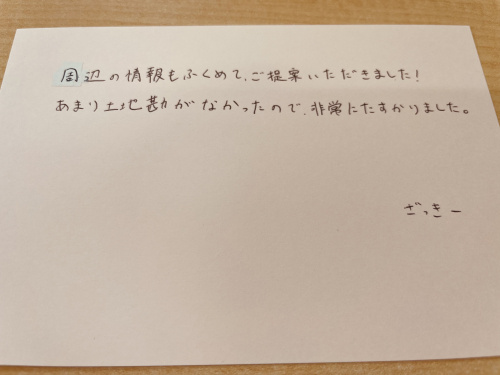 周辺の情報もふくめて、ご提案いただきました!
あまり土地勘がなかったので、非常にたすかりました。
ざっきー